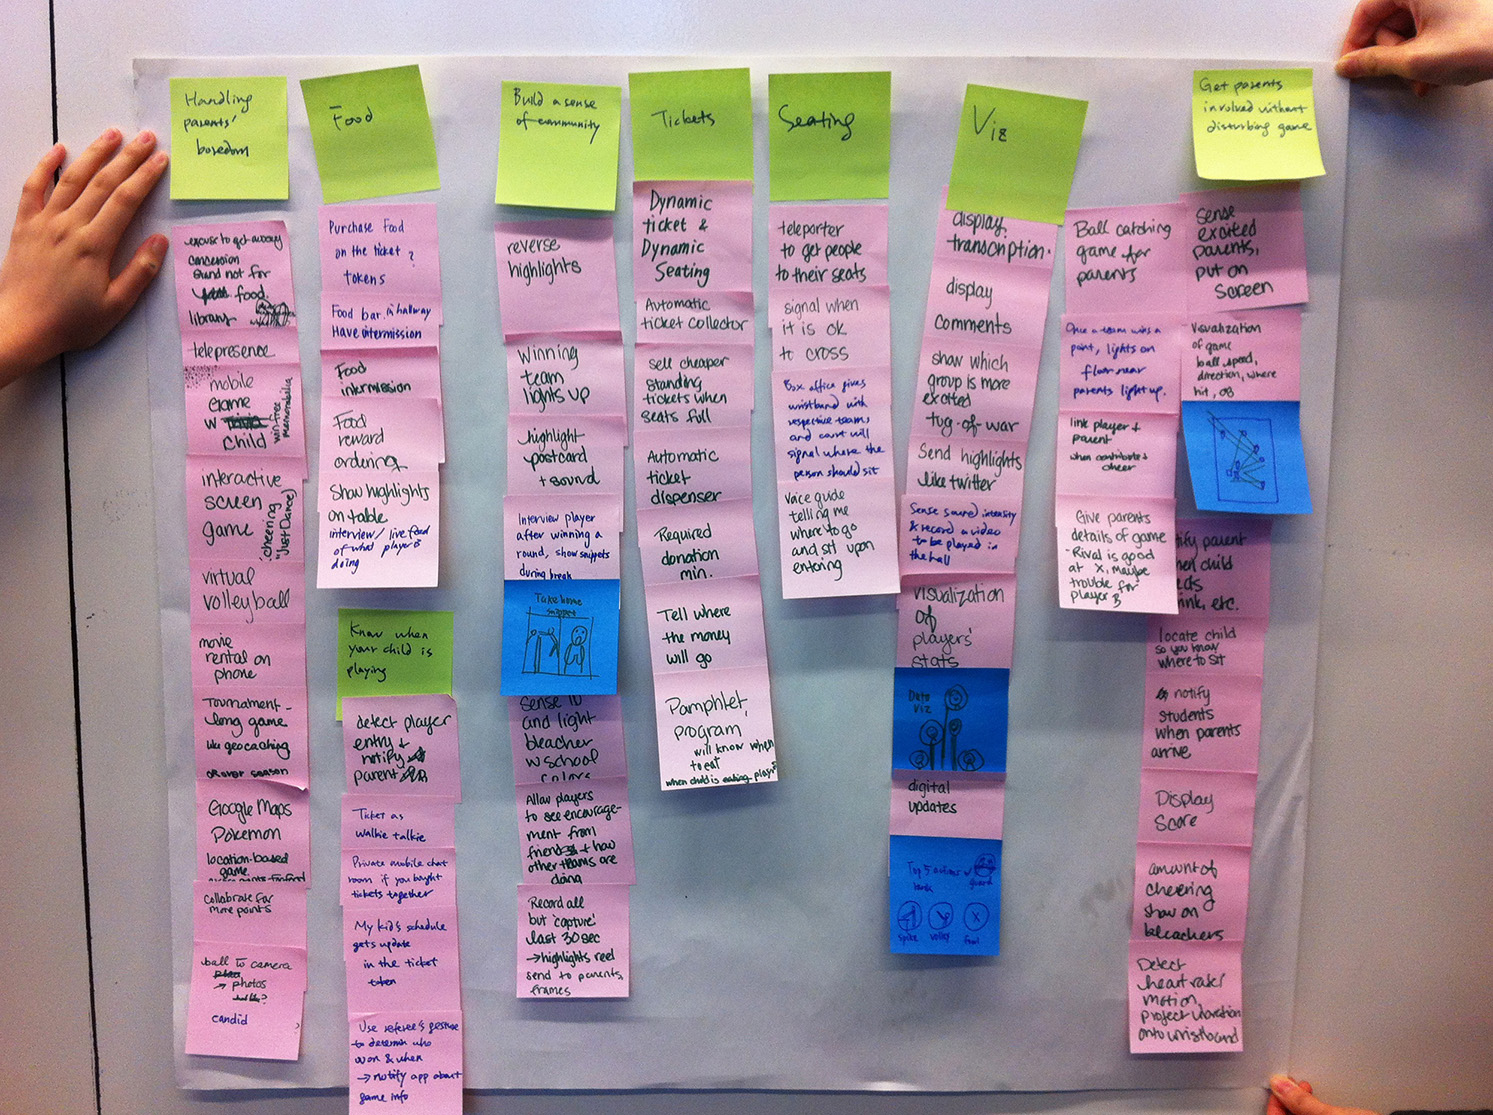 Handling
parents'
boredom
excuse to get away
concession
stand not for
food.
library
telepresence
mobile
Game
w
child
win free
memorabilia
interactive
screen
game
cheering
"Just Dance"
virtual
volleyball
movie
rental on
phone
Tournament-
long game
like geocaching
or over season
Google Maps
Pokemon
location-based
game
collaborate for
more points
ball to camera
→ photos
candid
Food
Purchase Food
on the ticket ?
tokens
Food bar in hallway
Have intermission
Food
intermission
Food
reward
ordering
Show highlights
on table
interview / live feed
of what player is
doing
Know when
your child is
playing
detect player
entry +
notify
parent
Ticket as
walkie talkie
Private mobile chat
room if you bought
tickets together
My kid's schedule
gets update
in the ticket
token
Use referee's gesture
to determine who
won & when
→ notify app about
game info
Build a sense
of community
reverse
highlights
Winning
team
lights up
highlight
postcard
+ sound
Interview player
after winning a
round, show snippets
during break
Take home
snippet
Sense ID
and light
bleacher
w school
colors
Allow players
to see encourage-
ment from
friends + how
other teams are
doing
Record all
but 'capture'
last 30 sec
→ highlights reel
send to parents,
frames
Tickets
Dynamic
ticket &
Dynamic
Seating
Automatic
ticket collector
sell cheaper
standing
tickets when
seats full
Automatic
ticket
dispenser
Required
donation
min.
Tell where
the money
will go
Pamphlet,
program
will know when
to eat
when child is eating, playing
Seating
teleporter
to get people
to their seats
signal when
it is ok
to cross
Box office gives
wristband with
respective teams
and court will
signal where the
person should sit
voice guide
telling me
where to go
and sit upon
entering
Viz
display
transcription.
display
comments
show which
group is more
excited
tug-of-war
Send highlights
like twitter
Sense sound intensity
& record a video
to be played in
the hall
visualization
of
players'
stats
Data
Viz
digital
updates
Top 5
spike
volley
foul
Get parents
involved without
disturbing game
Ball catching
game for
parents
Once a team wins a
point, lights on
floor near
parents light up.
link player +
parent
when contribute +
cheer
Give parents
details of game
-Rival is good
at X, maybe
trouble for
player B
Sense
excited
parents,
put on
screen
Visualization
of game
ball speed,
direction, where
hit,
tify parent
hen child
eds
ink, etc.
locate child
so you know
where to sit
notify
students
when parents
arrive
Display
Score
amount of
cheering
show on
bleachers
Detect
heart rate/
motion
project vibration
onto wristband